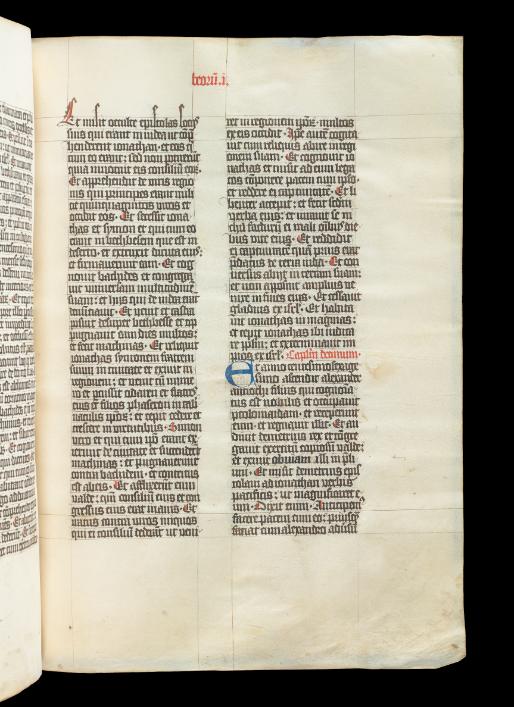 beorū.i.
Et misit occulte epistolas socijs
suis qui erant in iudea ut cōp̄
henderent ionathan et eos q̄
cum eo erant; sed non potuerūt
quia innotuit eis consilium eoꝝ.
Et apprehendit de viris regio
nis qui principes erant mali
cie quinquaginta viros et
occidit eos. Et secessit iona
thas et symon et qui cum eo
erant in bethbessen que est in
deserto. et extruxit diruta eius;
et firmauerunt eam. Et cog
nouit bachides et congregauit
vniuersam multitudinē
suam; et hijs qui de iudea erāt
denūciauit. Et venit et castra
posuit desuper bethbessen et op
pugnauit eam dies multos;
et fecit machinas. Et reliquit
ionathas symonem fratrem
suum in ciuitate et exiuit in
regionem; et venit cū nume
ro et percussit odaren et fratres
eius et filios phaseron in taber
naculis ipsoꝝ; et cepit cedere et
crescere in virtutibus. Simon
vero et qui cum ipō erant ex
ierunt de ciuitate et succenderūt
machinas; et pugnauerunt
contra bachidem et contritus
est ab eis. Et afflixerunt eum
valde; qm̄ consilium eius et con
gressus eius erat inanis. Et
iratus contra viros iniquos
qui ei consiliū dederāt ut veni
ret in regionem ipōꝝ. multos
ex eis occidit. Ipse autē cogita
uit cum reliquis abire in regi
onem suam. Et cognouit io
nathas et misit ad eum lega
tos cōponere pacem cum ipso.
et reddere ei captiuitatē. Et li
benter accepit; et fecit secundū
verba eius; et iurauit se ni
chil facturū ei mali omnibꝫ die
bus vite eius. Et reddidit
ei captiuitatē quam prius erat
p̄datus de terra iuda. Et con
uersus abijt in terram suam;
et non apposuit amplius ue
nire in fines eius. Et cessauit
gladius ex isrł. Et habita
uit ionathas in machmas;
et cepit ionathas ibi iudica
re ipłm; et exterminauit im
pios ex isrł. Caplm̄ decimum.
Et anno centesimo sexage
simo ascendit alexander
anthiochi filius qui cognomina
tus est nobilis et occupauit
ptolomaidam. et receperunt
eum. et regnauit illic. Et au
diuit demetrius rex et cōgre
gauit exercitū copiosū valde;
et exiuit obuiam illi in prelium.
Et misit demetrius epis
tolam ad ionathan verbis
pacificis; ut magnificaret e
um. Dixit enim. Anticipem
facere pacem cum eo; priusqͣꝫ
faciat cum alexandro aduersū